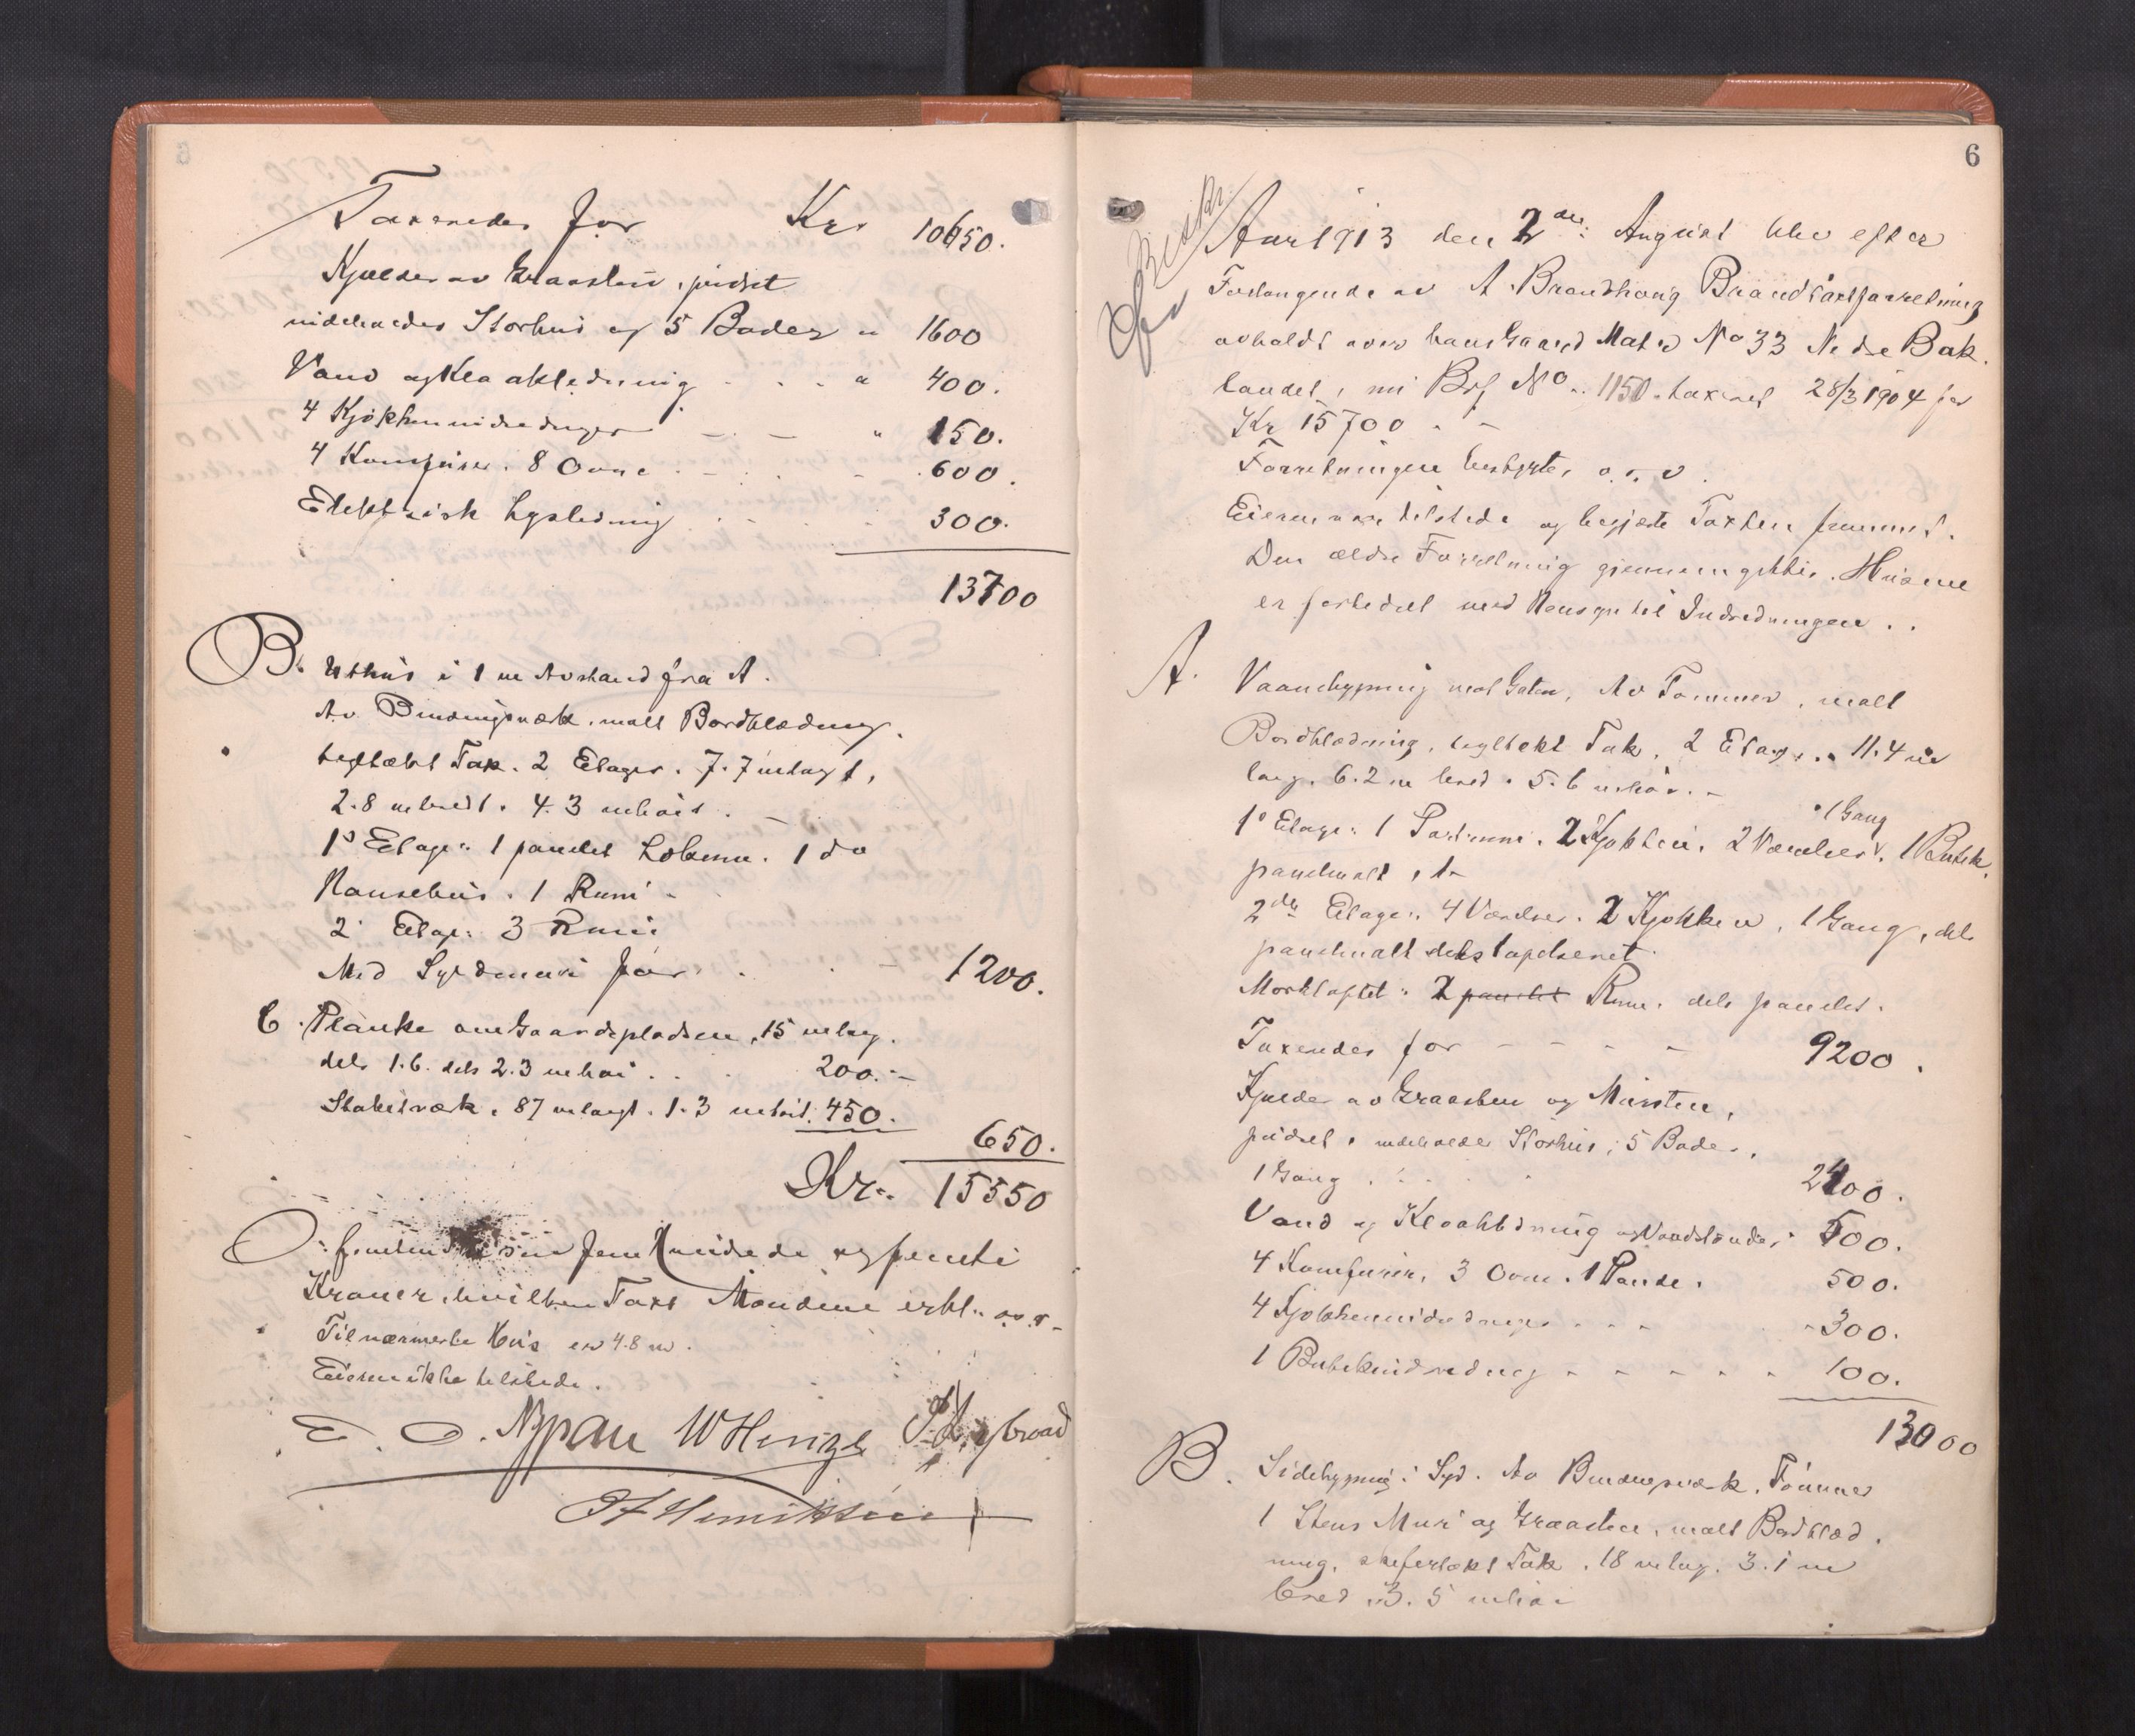 Taxeredes for Kr. 10650.
Kjælder av Graasten, pudset
indeholder Storhus og 5 Boder " 1600
Vand og Kloakledning - - - " 400.
4 Kjøkkenindredninger - - " 150.
4 Komfurer. 8 Ovne - - - 600.
Elektrisk Lysledning - - - 300.
13700
B. Uthus i 1 m Avstand fra A.
Av Bindingsværk, malt Bordklædning,
tegltækt Tak. 2 Etager. 7.7 m langt,
2.8 m bredt. 4.3 m høit. -
1s Etage: 1 panelet Lokum. 1 do
1 Rum -
2' Etage: 3 Rum
Med Syldmur for - - 1200.
C. Planke om Gaardspladsen, 15 m lang.
dels 1.6. dels 2.3 m høi . . 200.-
Stakitværk, 87 m langt. 1.3 m høit. 450.
650.
Kr. 15550
O: femtend fem Hundrede og femti
Kroner, hvilken Taxt Mændene erkl. o.s.v.
Til nærmeste Hus er 4.8 m.
Eieren ikke tilstede.
E. O. Nypan W Hinze
H Henriksen
6
Beskr.
Aar 1913 den 2den August blev efter
Forlangende av A. Brandhaug Brandtaxtforretning
avholdt over hans Gaard Matr No 33 Nedre Bak
landet, ny Brf No 1150. taxeret 28/3 1904 for
Kr 15700 . -
Forretningen bestyrtes o. s. v.
Eieren var tilstede og begjærte Taxten fremmet.
Den ældre Forretning gjennemgikkes. Husene
er forbedret med Hensyn til Indredningen . .
A. Vaanebygning mot Gaten, Av Tømmer, malt
Bordklædning, tegltækt Tak, 2 Etager. 11.4 m
lang. 6.2 m bred. 5.6 m høi. -
1 Gang
1s Etage: 1 Portrum, 2 Kjøkken, 2 Værelser, 1 Butik,
panelmalt
2den Etage: 4 Værelser. 2 Kjøkken, 1 Gang, dels
panelmalt dels tapetseret.
Mørkloftet: 2 panelet Rum, dels panelet.
Taxeredes for - - - - 9200.
Kjælder av Graasten og Mursten,
pudset, indeholder Storhus, 5 Boder,
1 Gang . . . . 2400.
Vand og Kloakledning og Vandklosetter 500.
4 Komfurer, 3 Ovne. 1 Pande. 500.
4 Kjøkkenindredninger - - - 300.
1 Butikindredning - - - - - 100.
13000
B. Sidebygning i Syd. Av Bindingsværk, Tømmer
1 Stens Mur og Graasten, malt Bordklæd
ning, skifertækt Tak. 18 m lang. 3.1 m
bred. 3.5 m høi